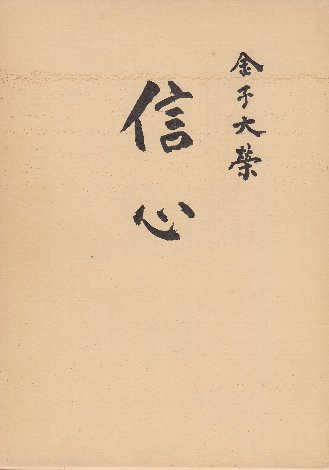 金子大榮
信心